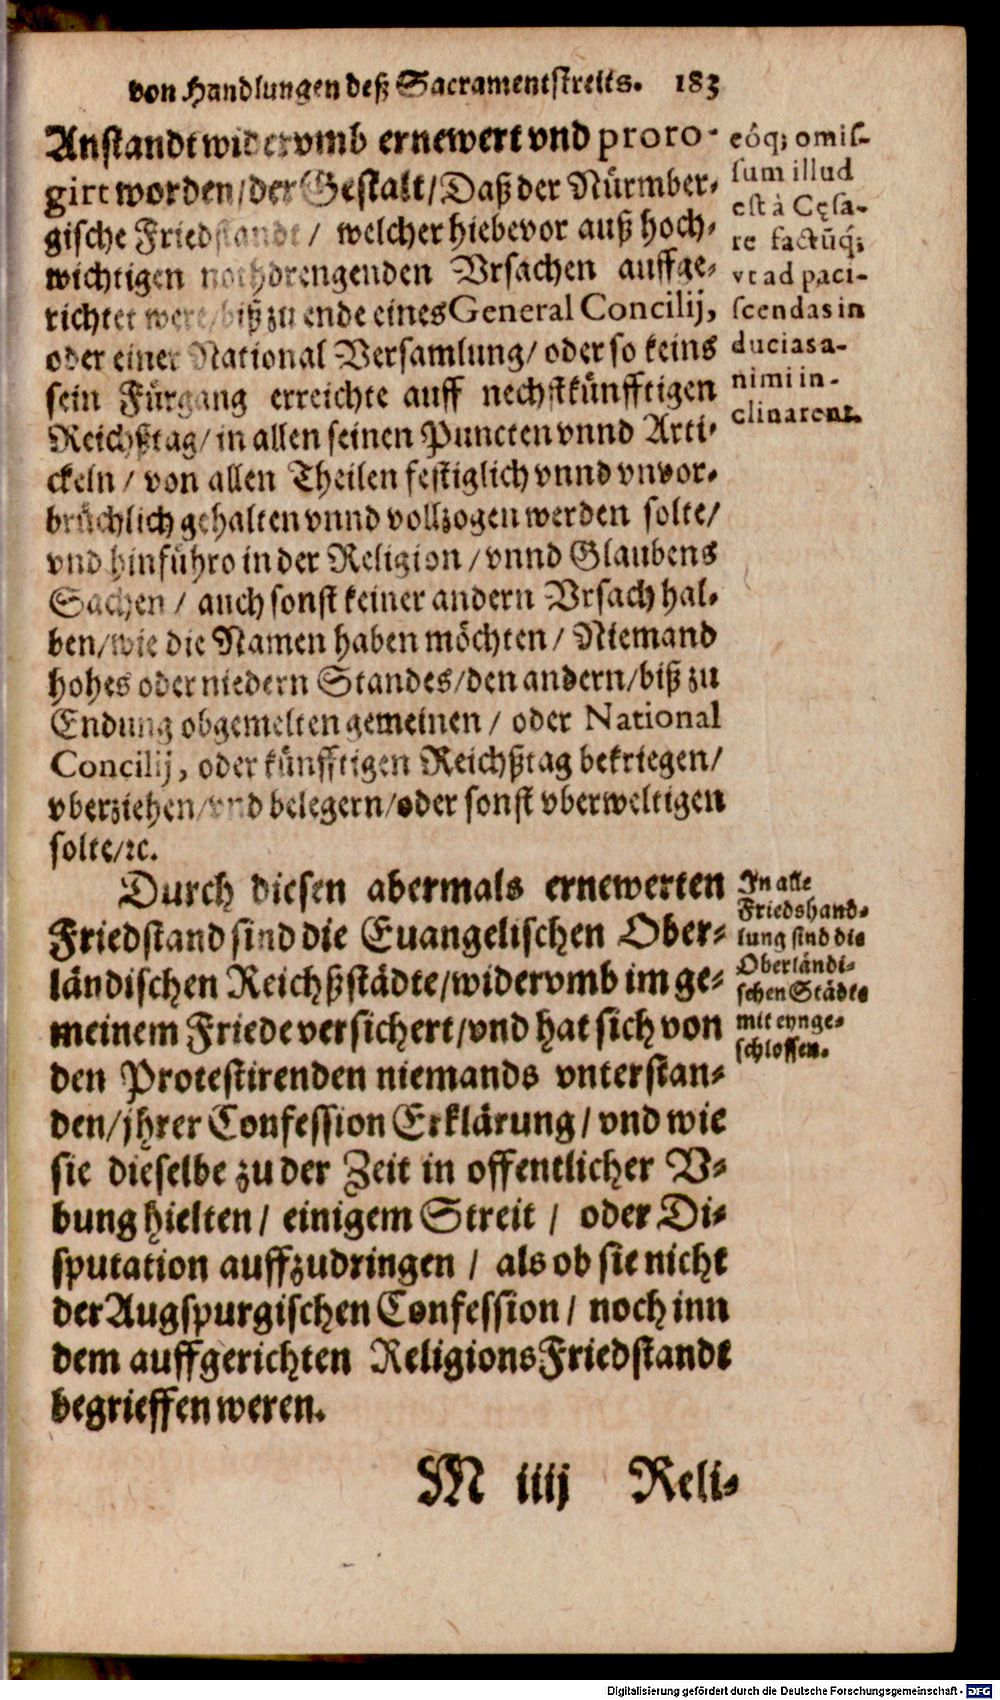 von Handlungen deß Sacramentstreits. 183
Anstandt widervmb ernewert vnd proro-
girt worden/der Gestalt/Daß der Nürmber-
gische Friedstandt / welcher hiebevor auß hoch-
wichtigen nothdrengenden Vrsachen auffge-
richtet were/biß zu ende eines General Concilij,
oder einer National Versamlung/ oder so keins
sein Fürgang erreichte auff nechstkünfftigen
Reichßtag/in allen seinen Puncten vnnd Arti-
ckeln / von allen Theilen festiglich vnnd vnvor-
brüchlich gehalten vnnd vollzogen werden solte/
vnd hinführo in der Religion / vnnd Glaubens
Sachen / auch sonst keiner andern Vrsach hal-
ben/wie die Namen haben möchten / Niemand
hohes oder niedern Standes/den andern/biß zu
Endung obgemelten gemeinen / oder National
Concilij, oder künfftigen Reichßtag bekriegen/
vberziehen/vnd belegern/oder sonst vberweltigen
solte/ꝛc.
eóq; omis-
sum illud
est à Cęsa-
re factũq́;
vt ad paci-
scendas in
ducias a-
nimi in-
clinarent.
Durch diesen abermals ernewerten
Friedstand sind die Euangelischen Ober-
ländischen Reichßstädte/widervmb im ge-
meinem Friede versichert/vnd hat sich von
den Protestirenden niemands vnterstan-
den/jhrer Confession Erklärung/ vnd wie
sie dieselbe zu der Zeit in offentlicher V-
bung hielten/ einigem Streit / oder Di-
sputation auffzudringen / als ob sie nicht
der Augspurgischen Confession / noch inn
dem auffgerichten ReligionsFriedstandt
begrieffen weren.
In alle
Friedshand-
lung sind die
Oberländi-
schen Städte
mit eynge-
schlossen.
M iiij Reli-
Digitalisierung gefördert durch die Deutsche Forschungsgemeinschaft - DFG